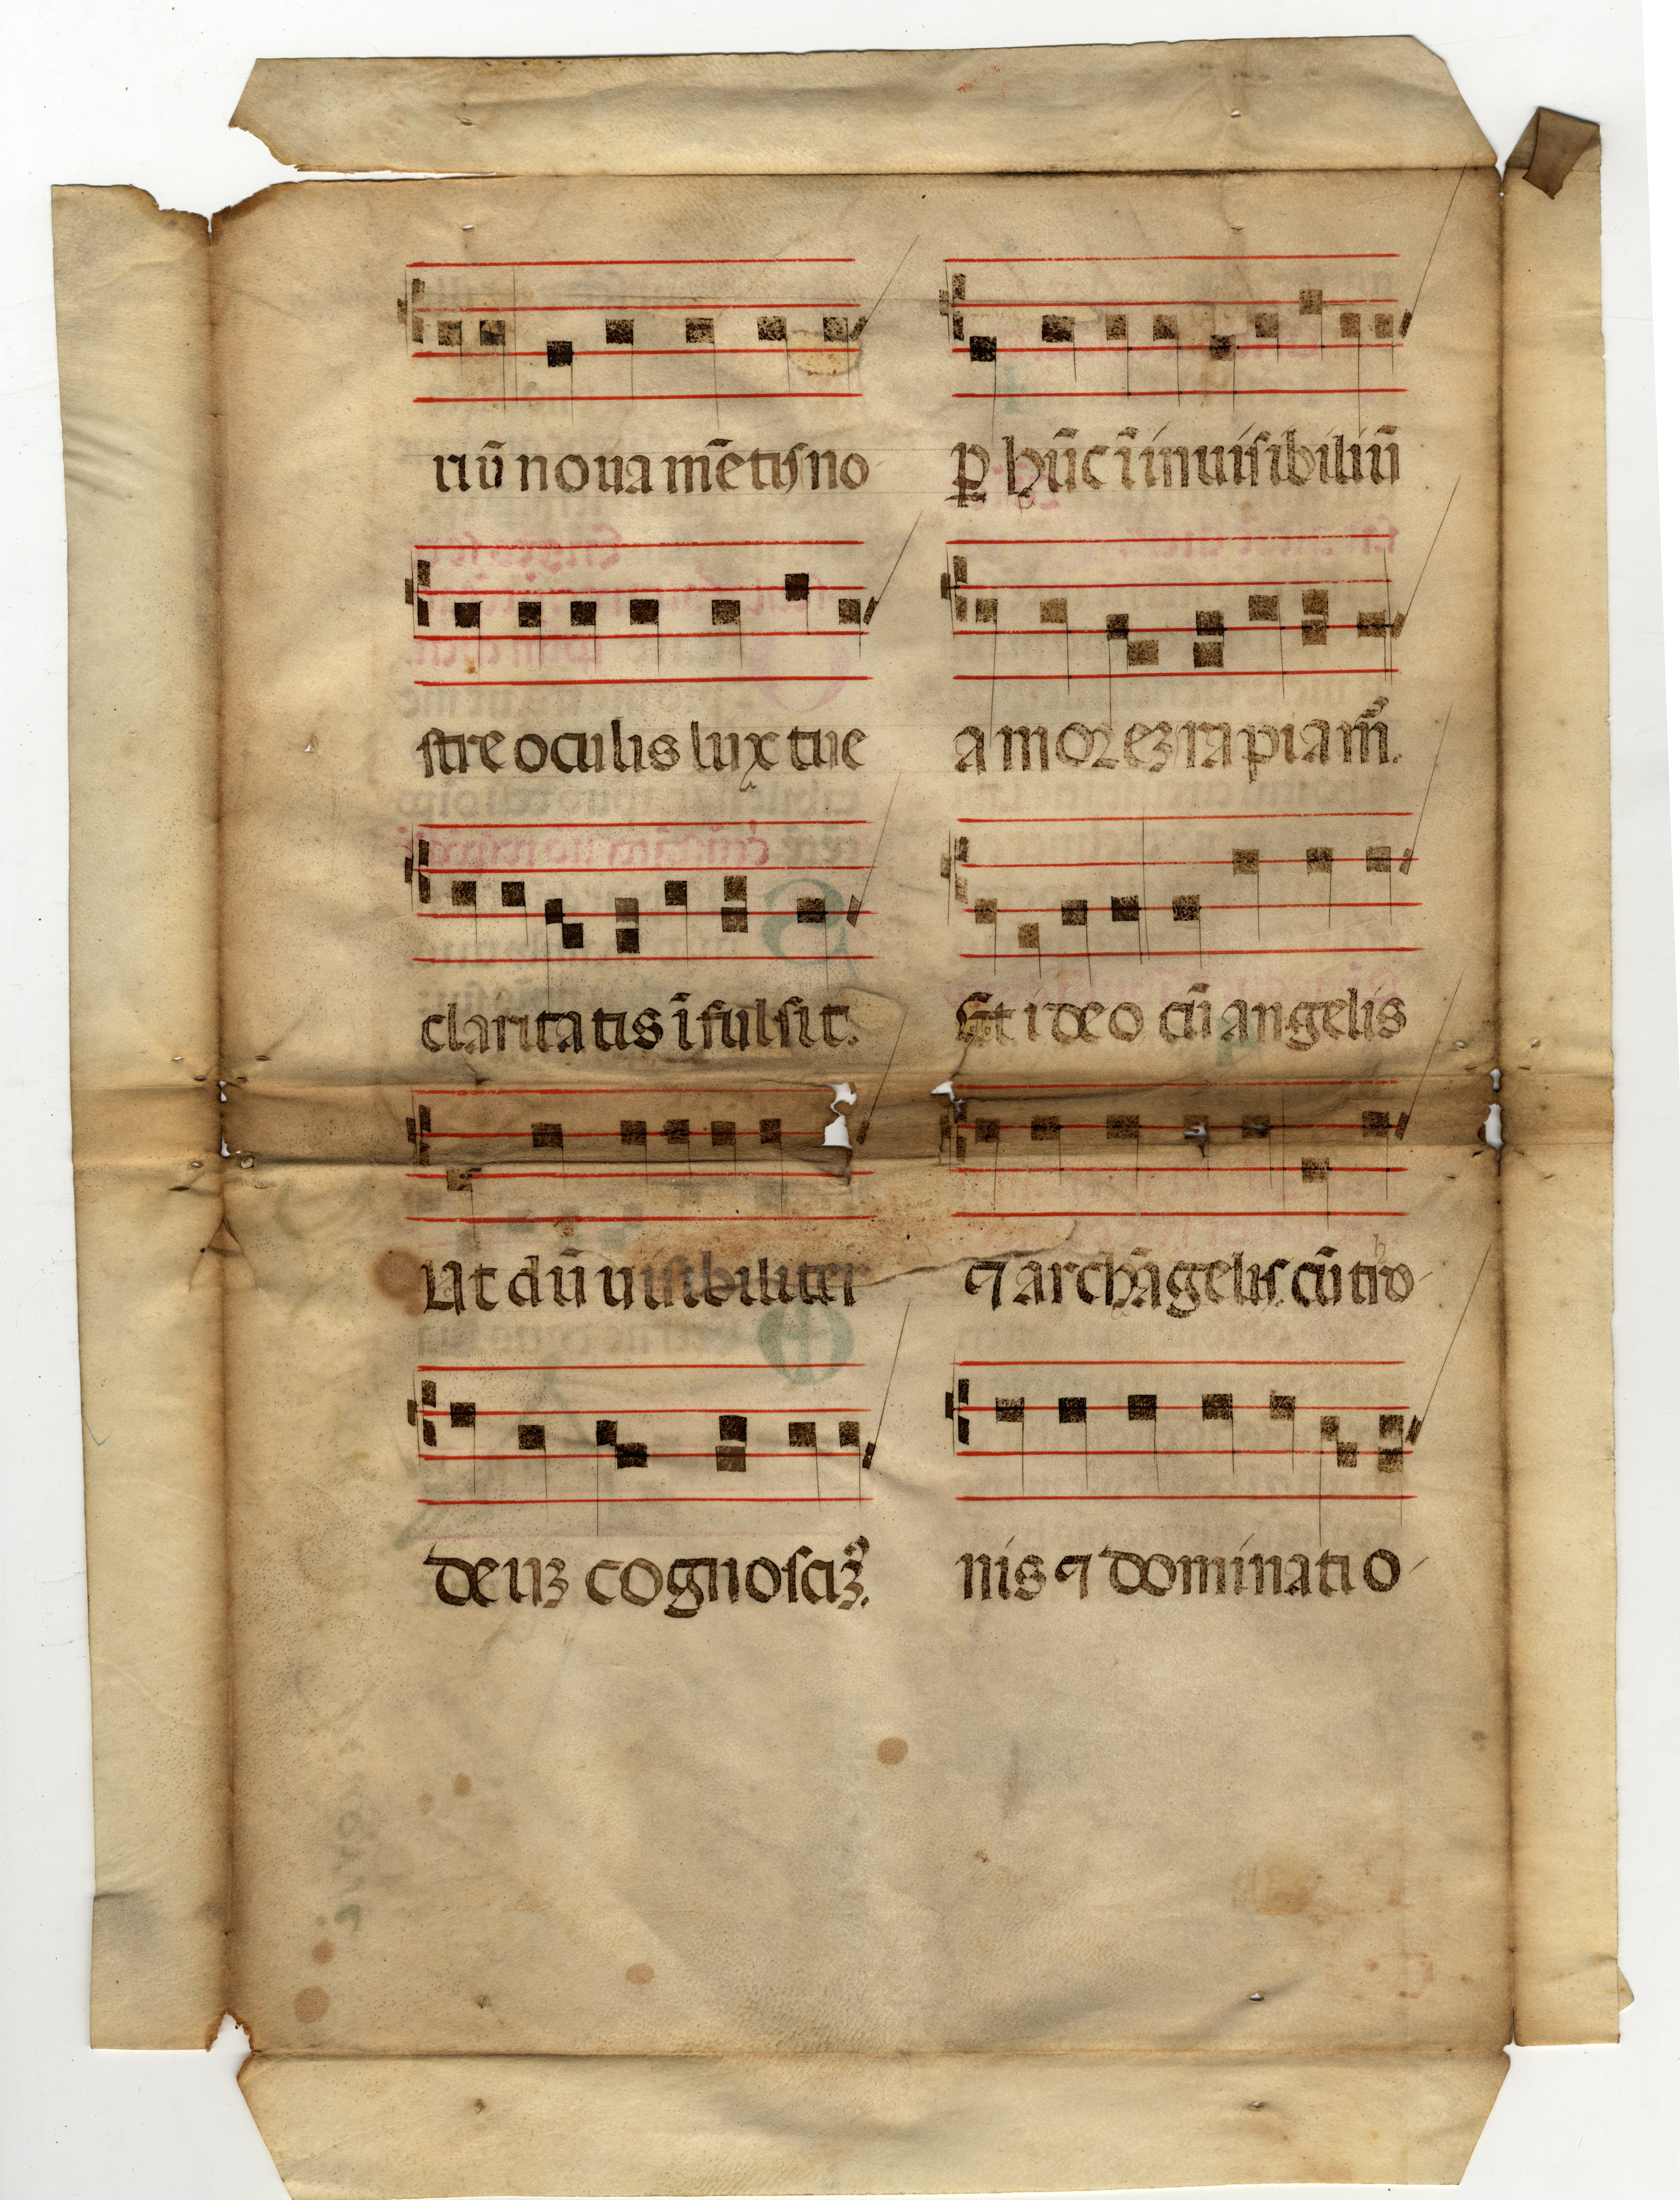 riū noua mētis no
stre oculis lux tue
claritatis īfulsit.
Ut dū uisibiliter
deuꝫ cognosciꝫ.
ꝑ hūc ī inuisibiliū
amoreꝫ rapiam̄.
Et ideo cū angelis
⁊ archāgelis cū tro
nis ⁊ dominatio